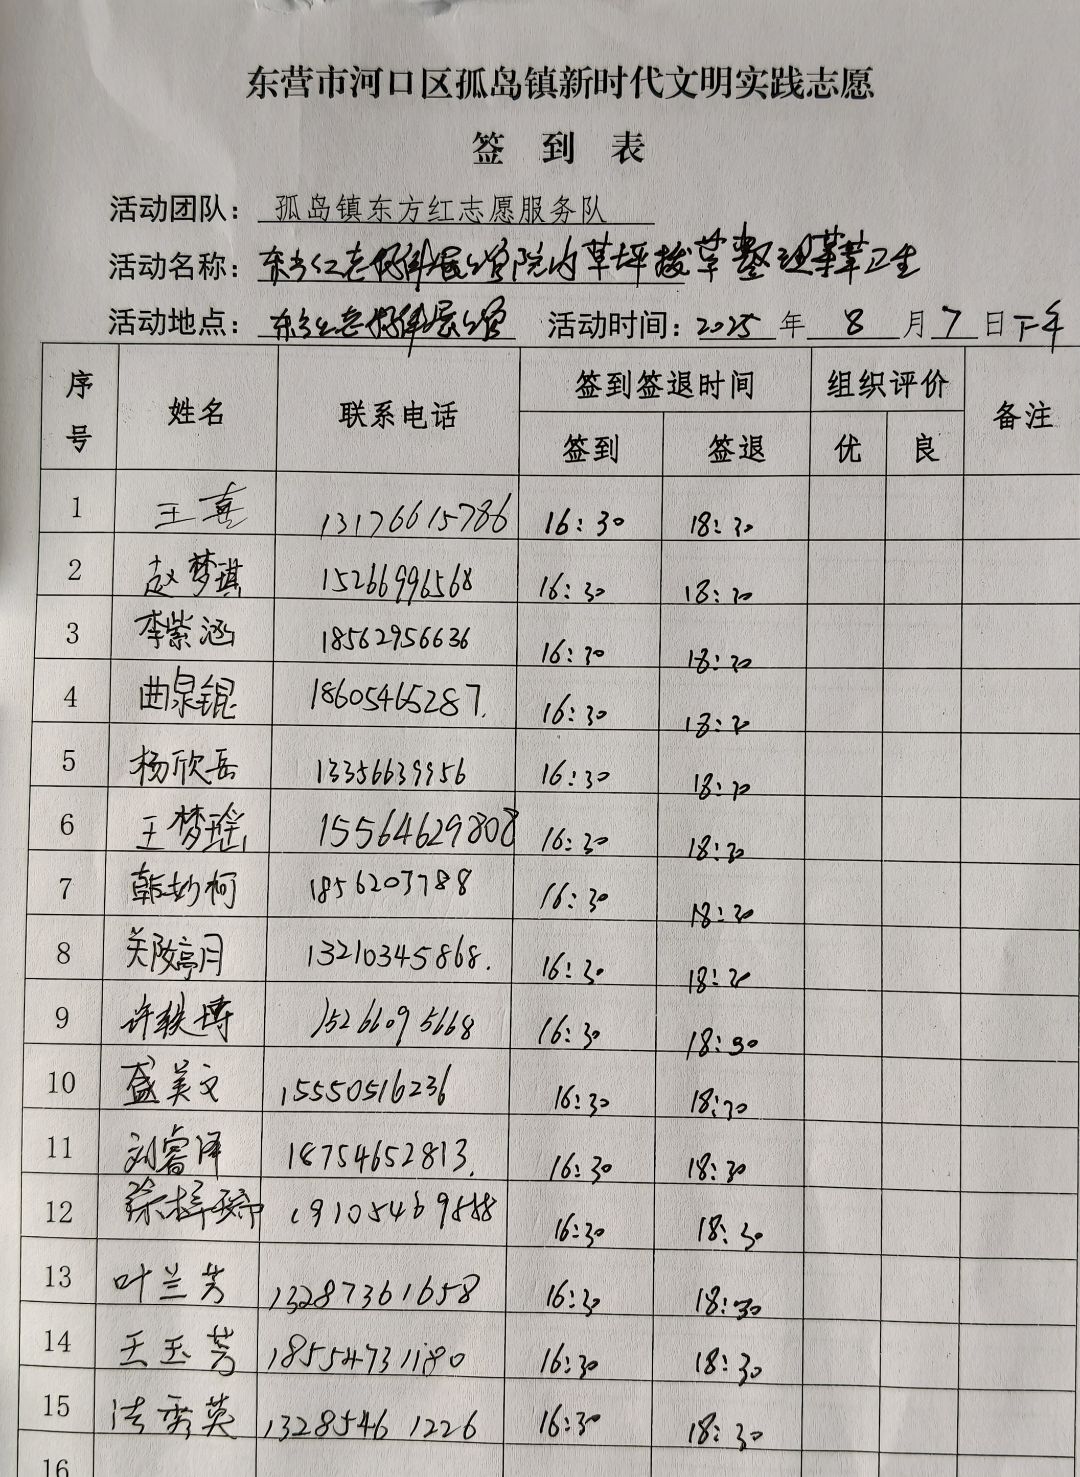 东营市河口区孤岛镇新时代文明实践志愿
签 到 表
活动团队： 孤岛镇东方红志愿服务队
活动名称： 院内草坪拔草整理 卫生
活动地点： 活动时间：2025 年 8 月 7 日 下午
序号 姓名 联系电话 签到签退时间 组织评价 备注
签到 签退 优 良
1 王喜 13176615786 16:30 18:30
2 赵梦琪 15266996568 16:30 18:30
3 李紫涵 18562956636 16:30 18:30
4 曲泉锟 18605465287. 16:30 18:30
5 杨欣岳 13356639956 16:30 18:30
6 王梦瑶 15564629808 16:30 18:30
7 韩妙柯 18562037788 16:30 18:30
8 13210345868. 16:30 18:30
9 许轶博 15266095668 16:30 18:30
10 盛美文 15550516236 16:30 18:30
11 刘睿泽 18754652813. 16:30 18:30
12 19105469888 16:30 18:30
13 叶兰芳 13287361658 16:30 18:30
14 王玉芳 18554731180 16:30 18:30
15 法秀英 13285461226 16:30 18:30
16